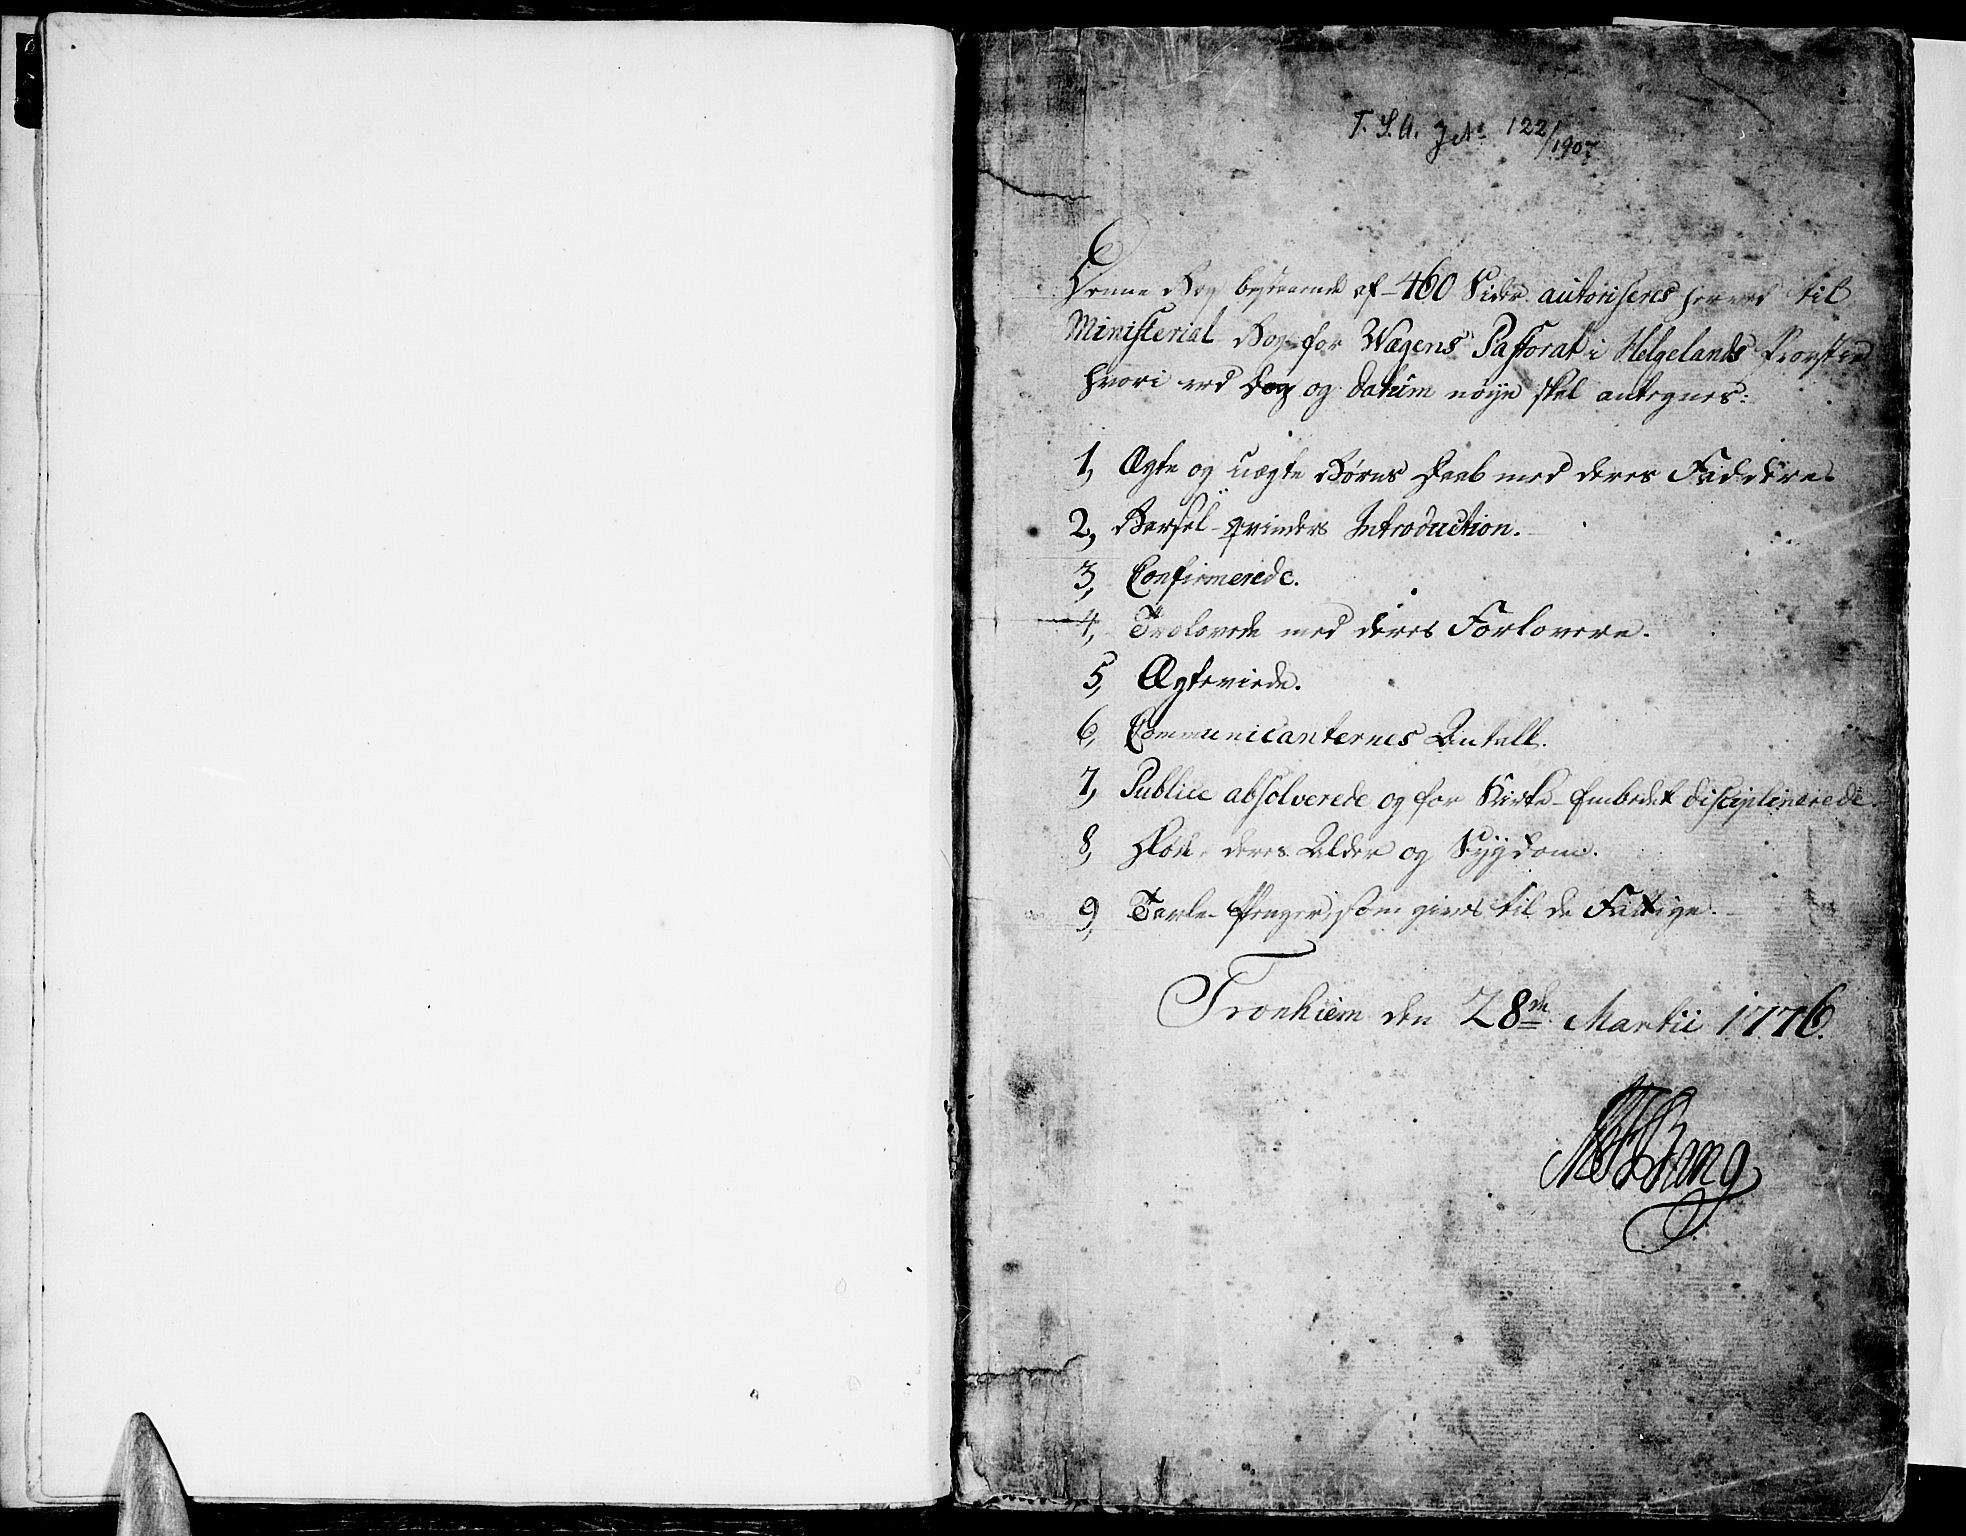 T. S. A. J.№ 122/1907
Denne Bog bestaaende af 460 Sider autoriseres herved til
Ministerial Bog for Wægens Pastorat i Helgelands Provstie
hvori ved Dag og Datum nøye skal antegnes:
1, Ægte og uægte Børns Daab med deres Faddere.
2, Barsel-qvinders Introduction.
3, Confirmerede.
4, Trolovede med deres Forlovere.
5, Ægteviede.
6, Communicanternes Antall.
7, Publice absolverede og for Kirke-Embedet disciplinerede.
8, Døde, deres Alder og Sygdom.
9, Tavle-Penger, som gives til de Fattige.
Tronhiem den 28de Martii 1776.
Bang